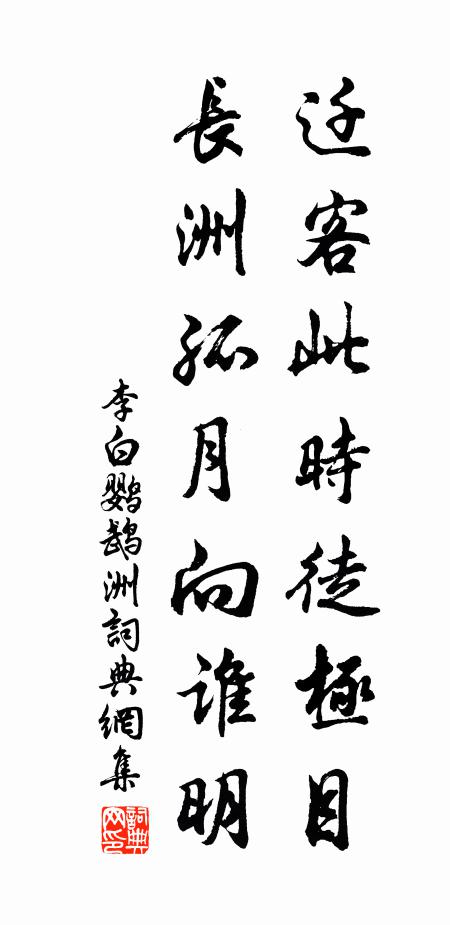 迁客此時徒極目
長洲孤月向誰明
李白鸚鵡洲詞典網集
詞典網印